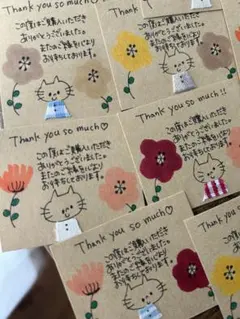 Thank you so much♡
この度はご購入いただき
ありがとうございました。
またのご縁を心より
お待ちしております。
Thank you so much!!
この度はご購入いただき
ありがとうございました。
またのご縁を心より
お待ちしております。
Thank you so much♡
この度はご購入いただき
ありがとうございました。
またのご縁を心より
お待ちしております。
Thank you so much!!
この度はご購入いただき
ありがとうございました。
またのご縁を心より
お待ちしております。
Thank you so much♡
この度はご購入いただき
ありがとうございました。
またのご縁を心より
お待ちしております。